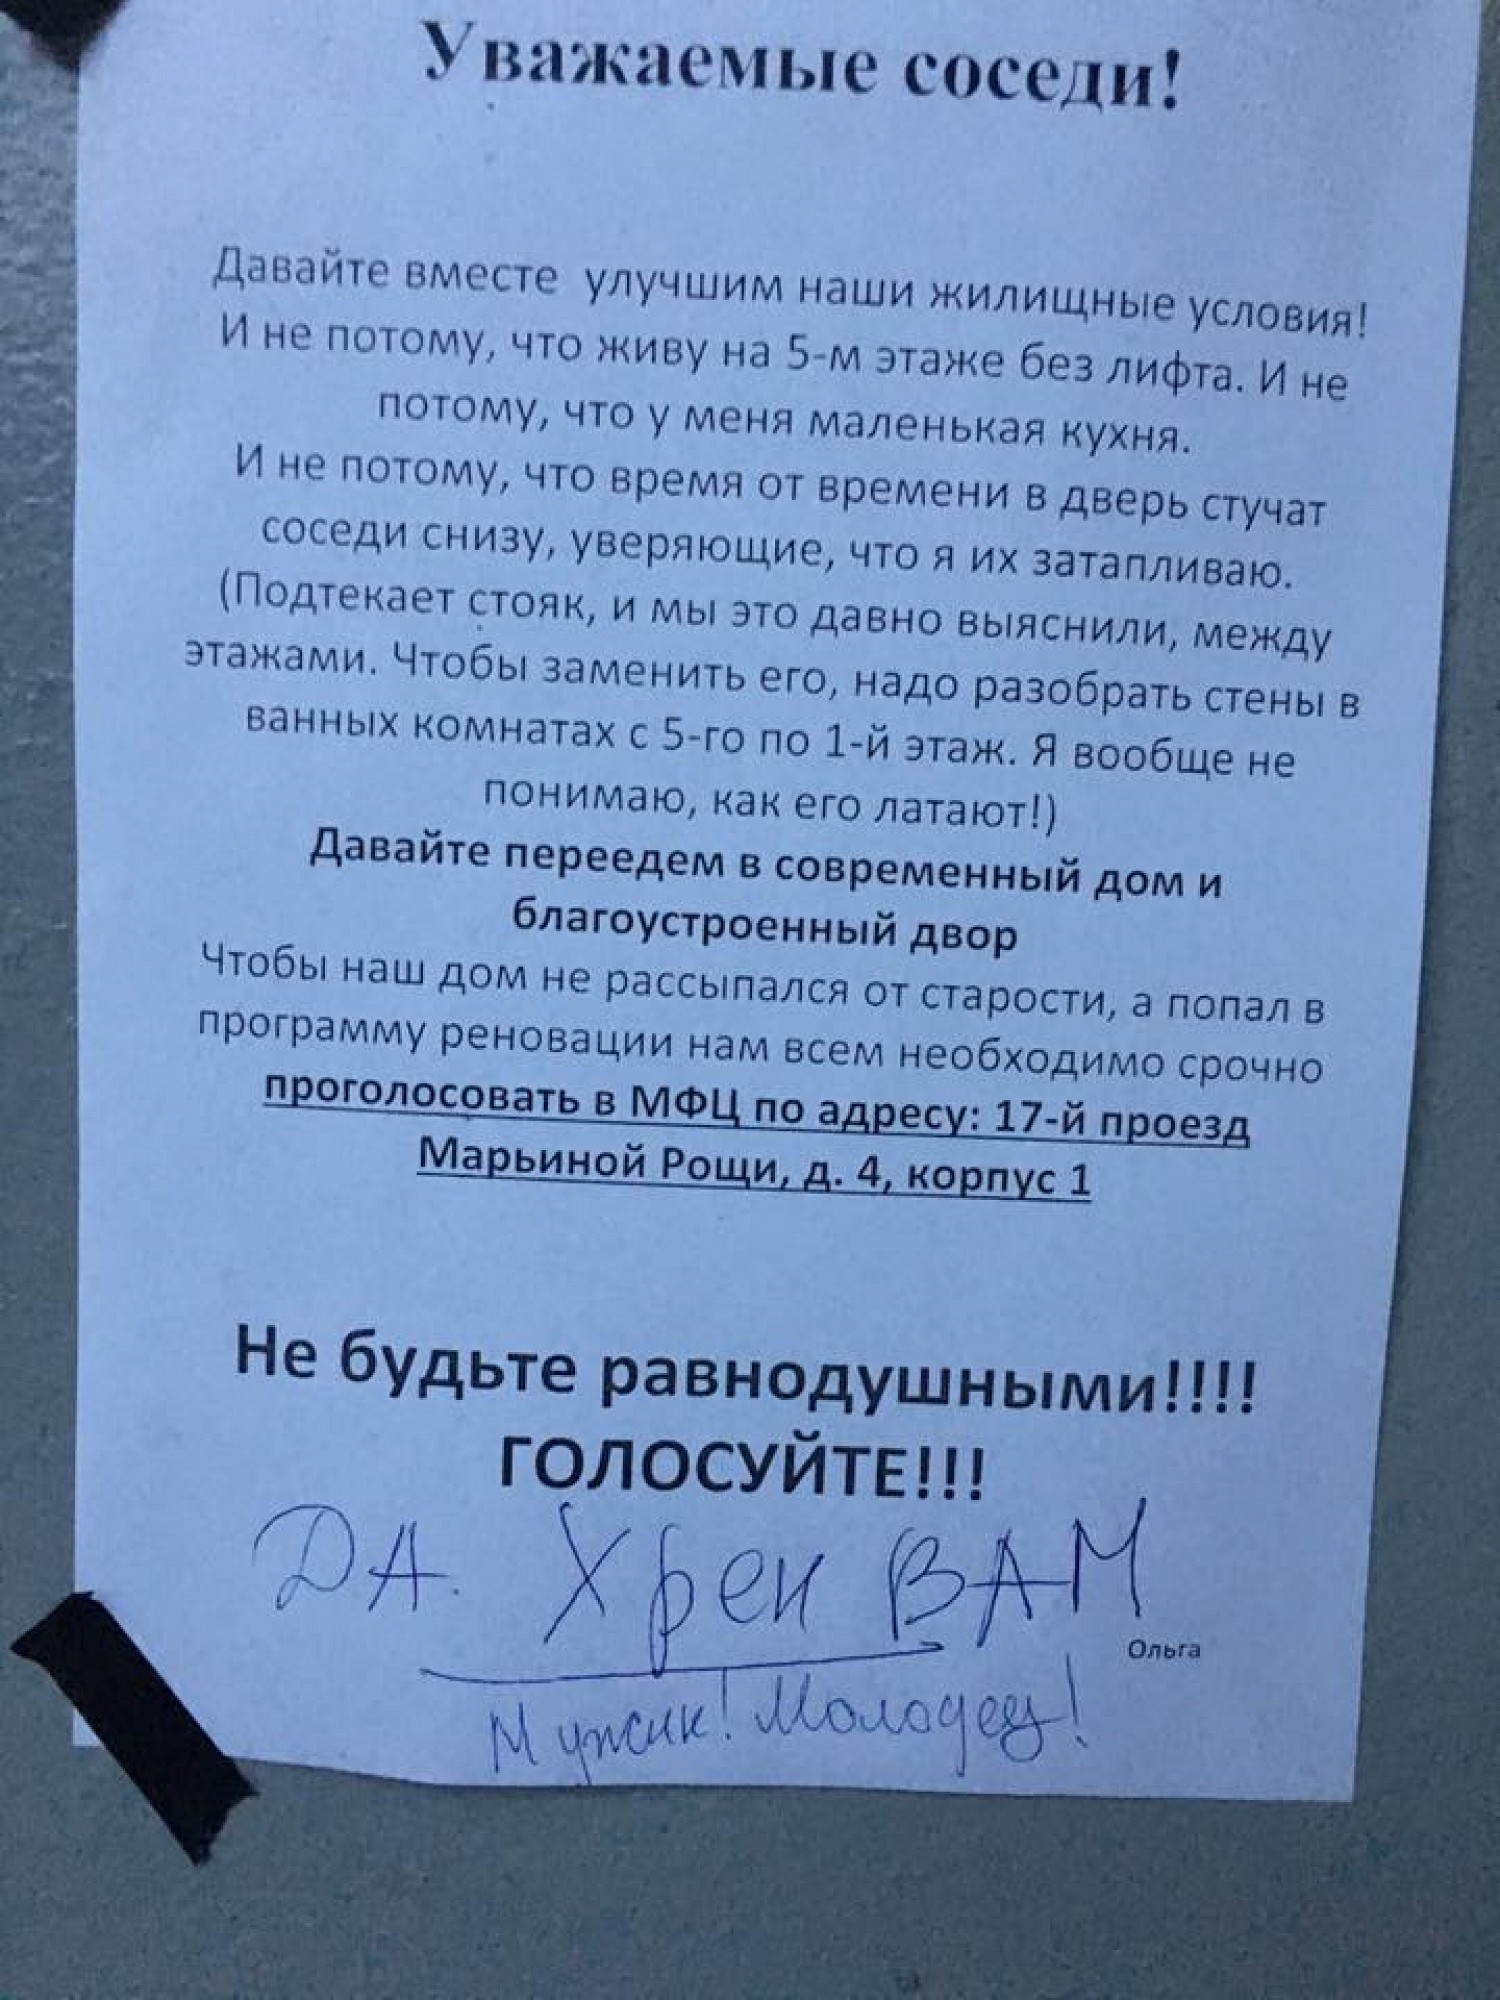 Уважаемые соседи!
Давайте вместе улучшим наши жилищные условия!
И не потому, что живу на 5-м этаже без лифта. И не
потому, что у меня маленькая кухня.
И не потому, что время от времени в дверь стучат
соседи снизу, уверяющие, что я их затапливаю.
(Подтекает стояк, и мы это давно выяснили, между
этажами. Чтобы заменить его, надо разобрать стены в
ванных комнатах с 5-го по 1-й этаж. Я вообще не
понимаю, как его латают!)
Давайте переедем в современный дом и
благоустроенный двор
Чтобы наш дом не рассыпался от старости, а попал в
программу реновации нам всем необходимо срочно
проголосовать в МФЦ по адресу: 17-й проезд
Марьиной Рощи, д. 4, корпус 1
Не будьте равнодушными!!!!
ГОЛОСУЙТЕ!!!
ДА. Хрен ВАМ
Ольга
Мужик! Молодец!